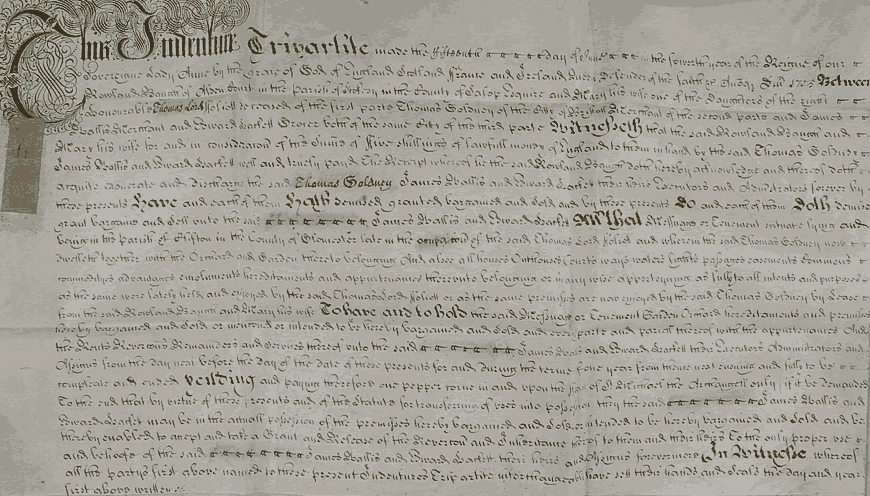 This Indenture Tripartite made the fifteenth day of June in the fowerth year of the Reigne of our
Sovereigne Lady Anne by the grace of God of England Scotland France and Ireland Queen Defender of the faith &c Annoq Dni 1705 Between
Rowland of in the parish of in the County of Salop Esquire and Mary his wife one of the daughters of the right
honourable Thomas Lord ffolliott deceased of the first parte Thomas Goldney of the City of Bristoll Merchant of the second parte and James
Wallis Merchant and Edward Hackett Grocer both of the same City of the third parte Witnesseth that the said Rowland and
Mary his wife for and in consideracon of the summe of ffive shillings of lawfull money of England to them in hand by the said Thomas Goldney
James Wallis and Edward Hackett well and truely paid The Receipt whereof he the said Rowland doth hereby acknowledge and thereof doth
acquite exonerate and discharge the said Thomas Goldney James Wallis and Edward Hackett their heires Executors and Administrators forever by
these presents Have and each of them Hath demised granted bargained and sold and by these presents Do and each of them Doth demise
grant bargaine and sell unto the said James Wallis and Edward Hackett All that Messuage or Tenement scituate lying and
being in the parish of Clifton in the County of Gloucester late in the occupacon of the said Thomas Lord ffolliott and wherein the said Thomas Goldney now
dwelleth together with the Orchard and Garden thereto belonging And also all houses Outhouses Courts wayes waters lights passages easements Commons
commodities advantages emoluments hereditaments and appurtenances thereunto belonging or in any wise apperteyning as fully to all intents and purposes
as the same were lately held and enjoyed by the said Thomas Lord ffolliott or as the same premises are now enjoyed by the said Thomas Goldney by Lease
from the said Rowland and Mary his wife To have and to hold the said Messuage or Tenement Garden Orchard hereditaments and premises
hereby bargained and sold or mentoned or intended to be hereby bargained and sold and every parte and parcell thereof with the appurtenances And
the Rents Revercons Remainders and Services thereof unto the said James Wallis and Edward Hackett their Executors Administrators and
Assignes from the day next before the day of the date of these presents for and during the terme of one year from thence next ensuing and fully to be
compleate and ended Yeilding and paying therefore one pepper corne in and upon the feast of St Michael the Archangell only if it be demanded
To the end that by virtue of these presents and of the Statute for transferring of uses into possession they the said James Wallis and
Edward Hackett may be in the actuall possession of the premises hereby bargained and sold or intended to be hereby bargained and sold and be
thereby enabled to accept and take a Grant and Release of the Revercon and Inheritance thereof to them and their heirs To the only proper use
and behoofe of the said James Wallis and Edward Hackett their heirs and Assignes forevermore In Witnesse whereof
all the partys first above named to these present Indentures Tripartite interchangeably have sett their hands and Seales the day and year
first above written